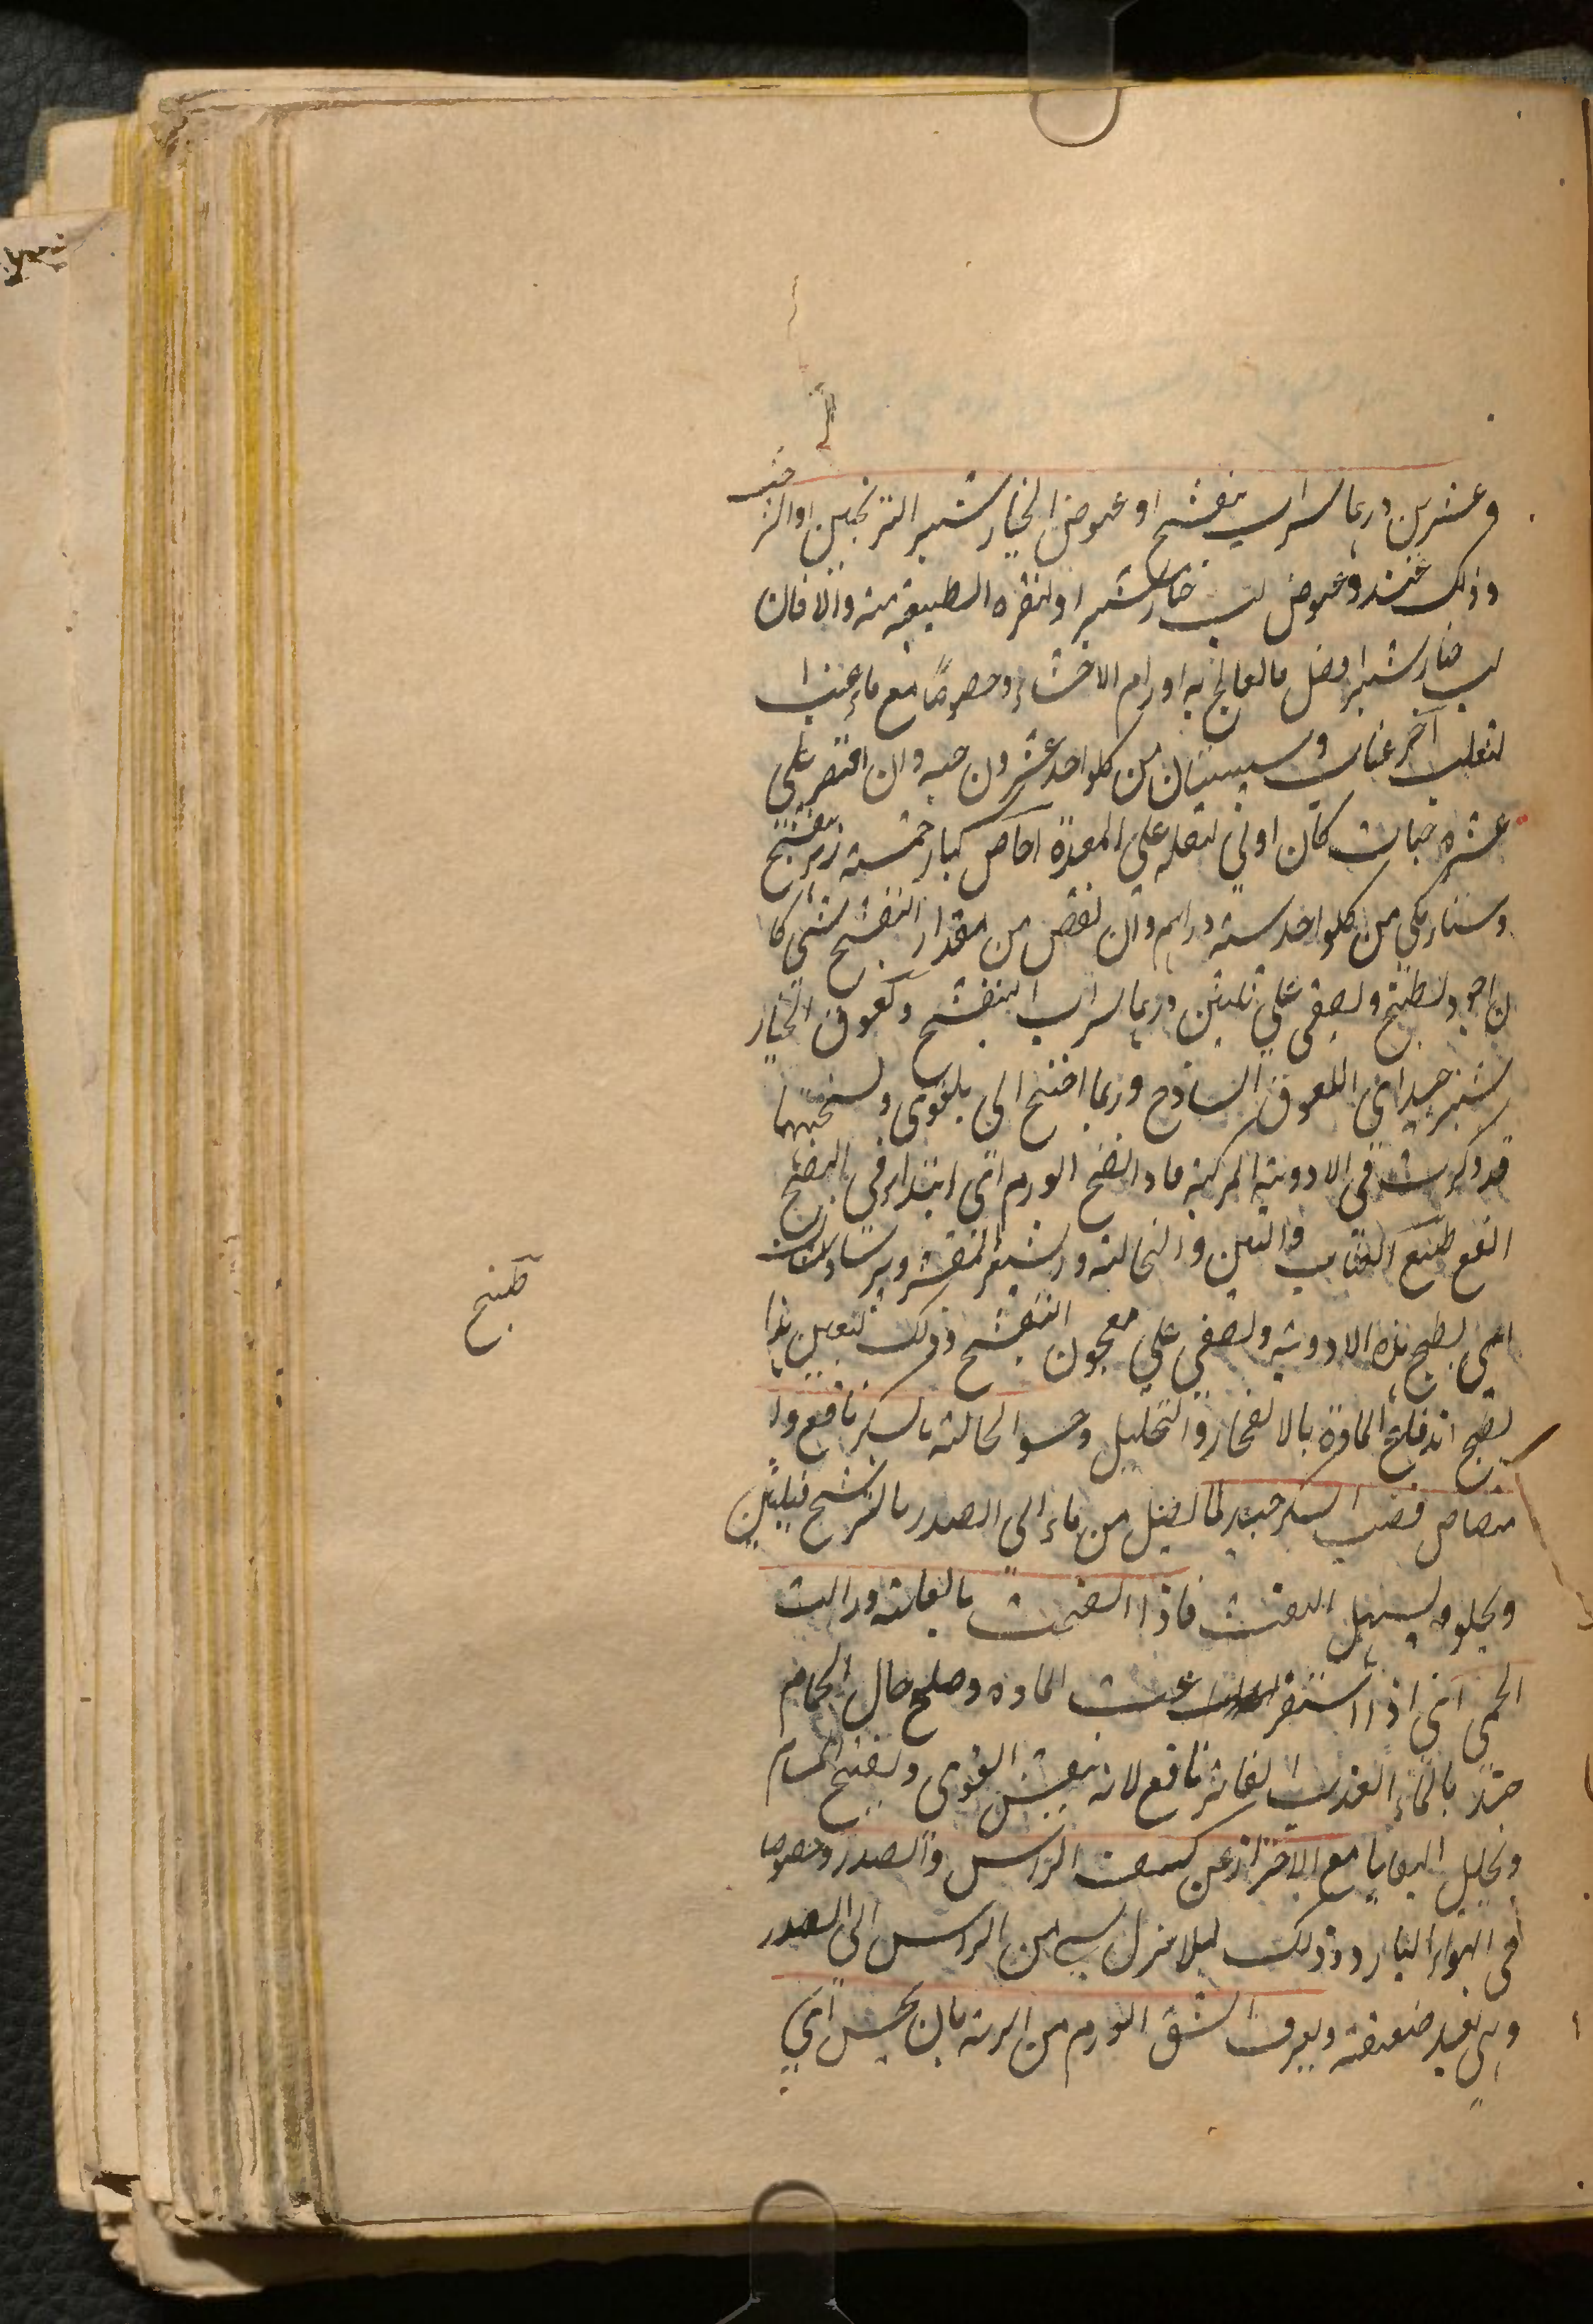 وعشرين درهما شراب بنفسج او عوض الخيار شنبر الترنجبين او الشر
خشت
وذلك عند وعوض لب خيار شنبر او لنفره الطبيعة منه والا فان
لب خيار شنبر افضل ما يعالج به اورام الاحشاء وخصوصًا مع ماء عنب ا
لثعلب آخر عناب وسبستان من كلواحد عشرون حبه وان اقتصر على
عشره حبات كان اولى لثقله على المعدة اجاص كبار خمسة زهر بنفسج
وسنا مكي من كلواحد ستة دراهم وان نقص من مقدار البنفسج شئ كا
ن اجود يطبخ ويصفى على ثلثين درهما شراب البنفسج ولعوق الخيار
شنبر جيد اى اللعوق الساذج وربما احتيج الى بلقوى ونسختهما
قد ذكرت فى الادوية المركبة فاذا نضج الورم اى ابتداء فى النضج
انفع طبيخ العناب والتين والنخالة وشعير المقشر وپرسياوشان
اى يطبخ هذه الادوية ويصفى على معجون البنفسج وذلك لتعين هذا
لطبخ اندفاع المادة بالانفجار والتحليل وحسو النخالة بالسكر نافع وا
متصاص قصب السكر جيد لما يصل من ماء الى الصدر بالترشح فيلين
ويجلو ويسهل النفث فاذا انفتحت بالغاية وزالت
الحمى اى اذا استفرغت المادة وصلح حال الحمام
حينئذ بالماء العذب الفاتر نافع لانه ينعش القوى ويفتح المسام
ويحلل البقايا مع الاحتراز عن كشف الراس والصدر وخصوصا
فى الهواء البارد وذلك ليلا ينزل شئ من الراس الى الصدر
وهى بعد ضعيفة ويعرف الشق الورم من الرية بان يحس اى
طبيخ